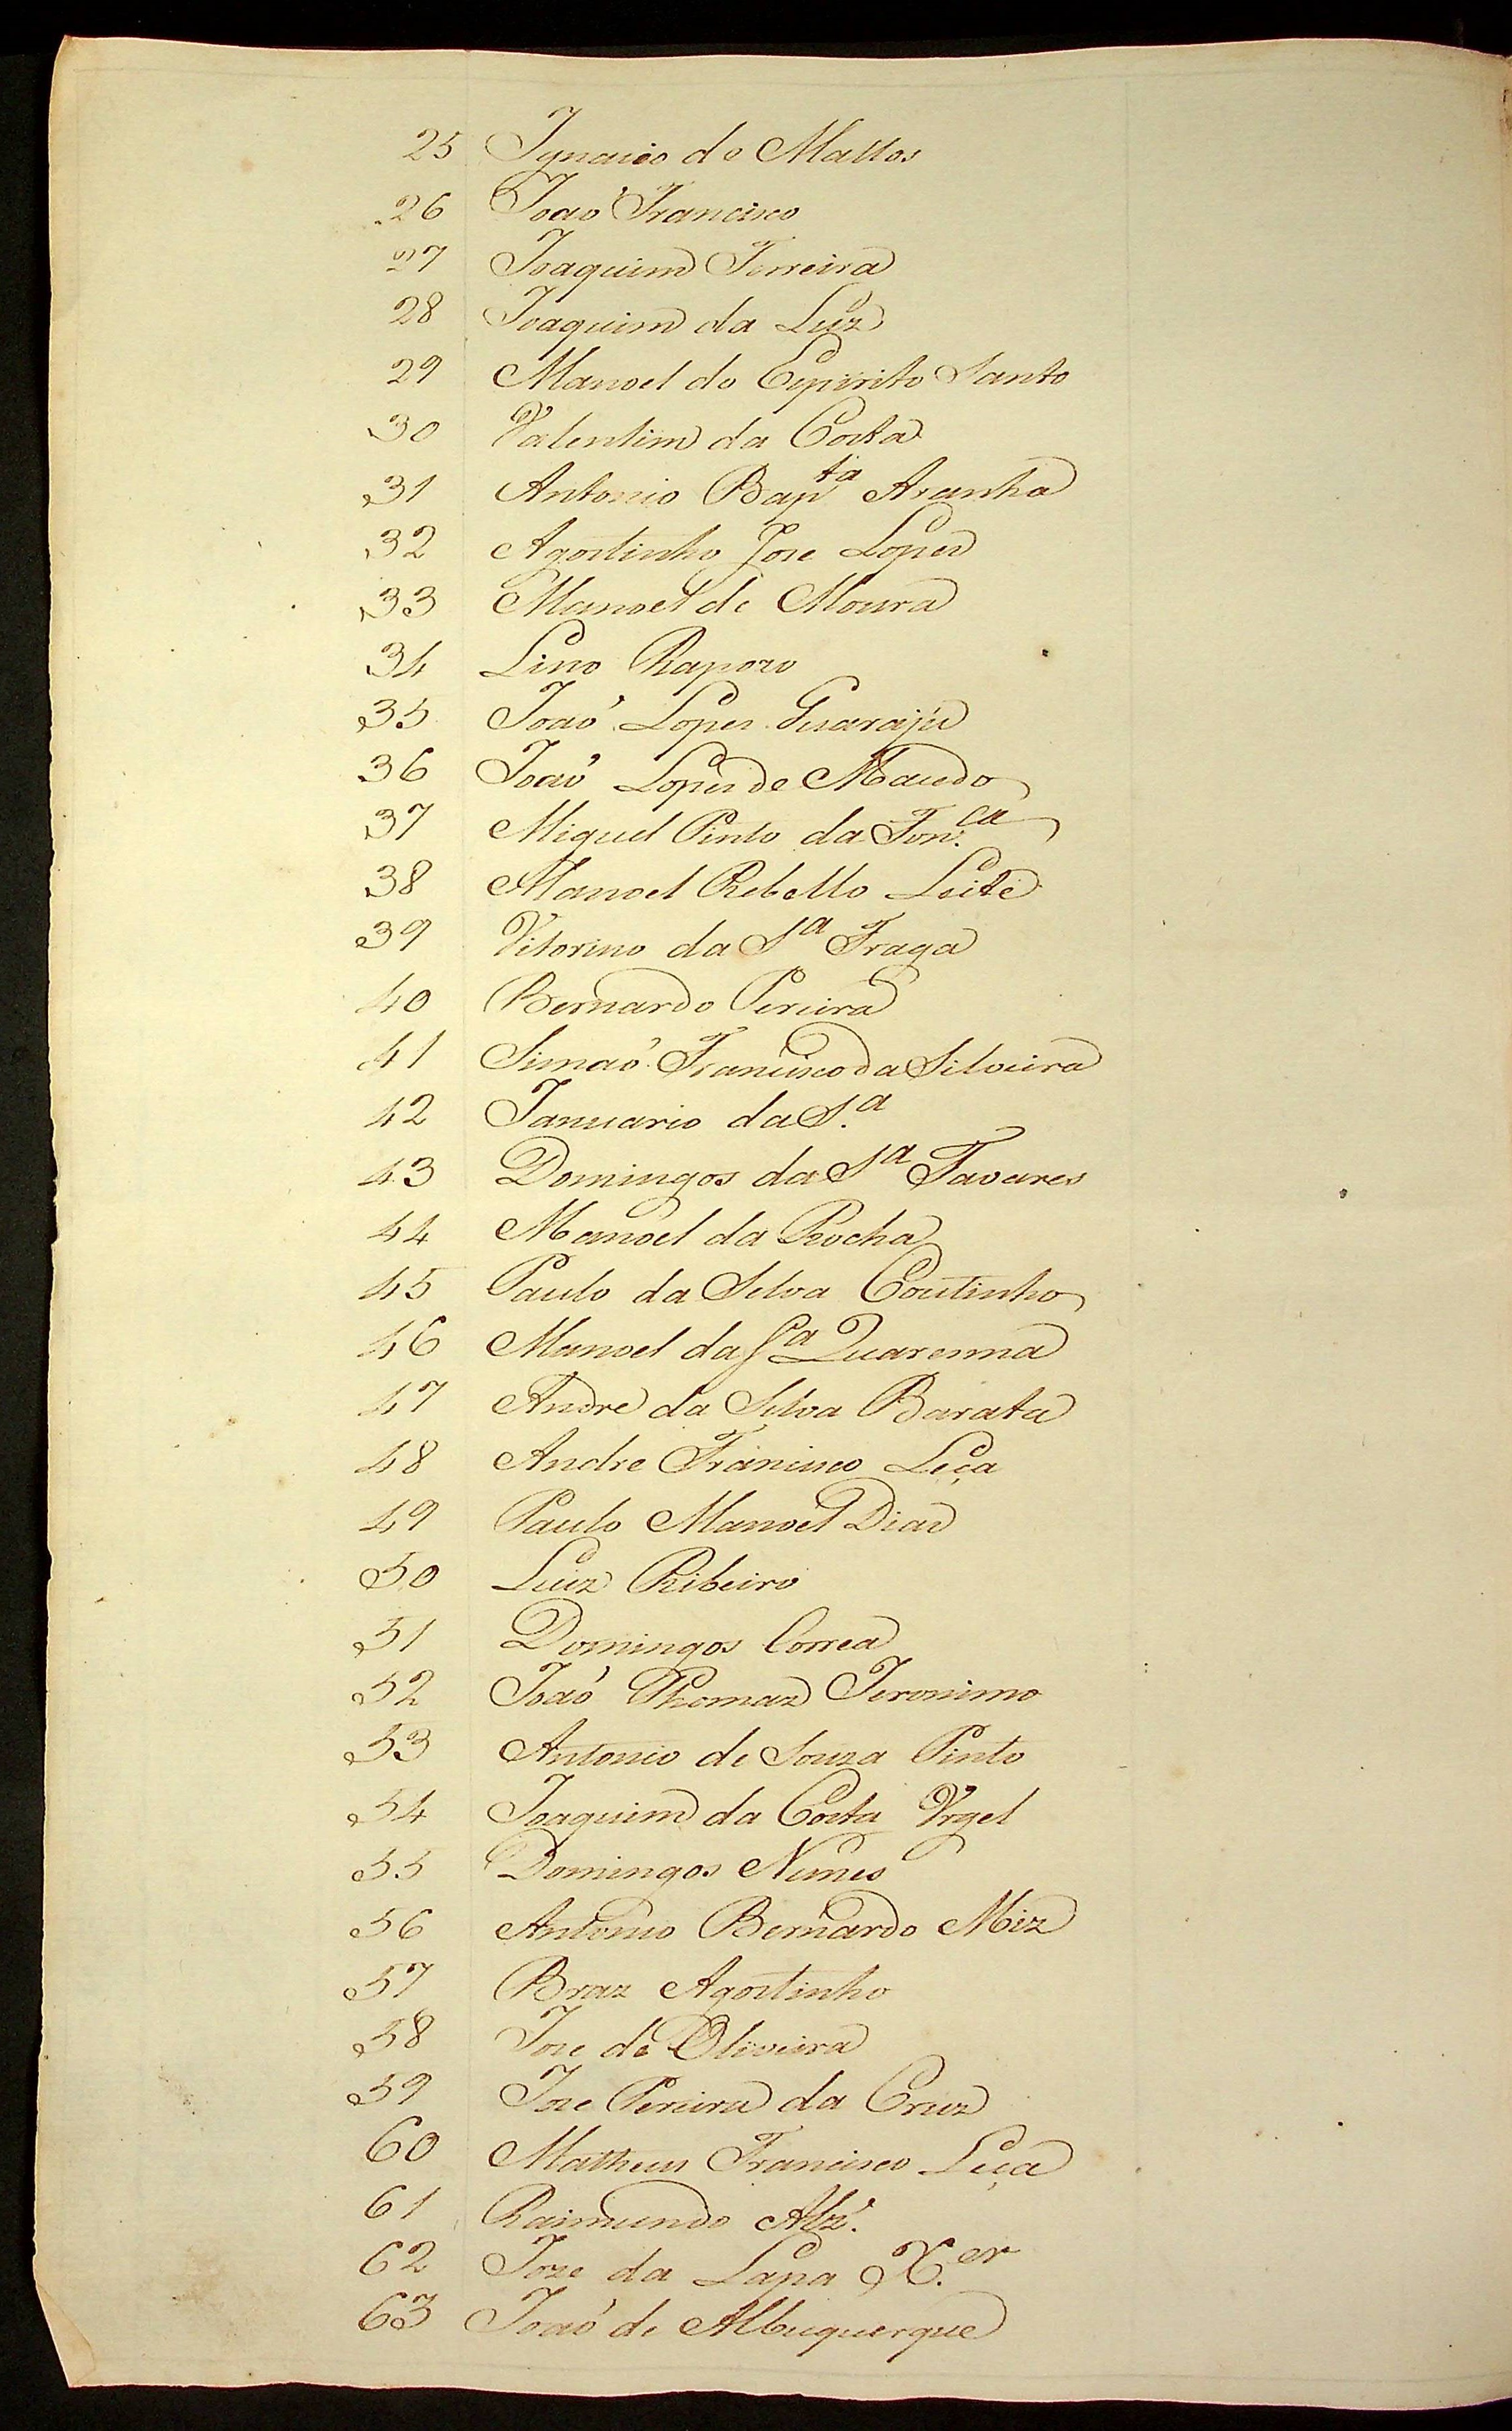 25 Ignacio de Mattos
26 Joaõ Francisco
27 Joaquim Ferreira
28 Joaquim da Luz
29 Manoel do Espirito Santo
30 Valentim da Costa
31 Antonio Bap.ta Aranha
32 Agostinho Jose Lopes
33 Manoel de Moura
34 Lino Raposo
35 Joaõ Lopes Guarajú
36 Joaõ Lopes de Macedo
37 Miguel Pinto da Fon.ca
38 Manoel Rebello Leite
39 Vitorino da S.a Fraga
40 Bernardo Pereira
41 Simaõ Francisco da Silveira
42 Januario da S.a
43 Domingos da S.a Tavares
44 Manoel da Rocha
45 Paulo da Silva Coutinho
46 Manoel da S.a Quaresma
47 Andre da Silva Barata
48 Andre Francisco Leça
49 Paulo Manoel Dias
50 Luiz Ribeiro
51 Domingos Correa
52 Joaõ Thomaz Jeronimo
53 Antonio de Souza Pinto
54 Joaquim da Costa Vrgel
55 Domingos Nunes
56 Antonio Bernardo Miz
57 Braz Agostinho
58 Joze de Oliveira
59 Joze Pereira da Cruz
60 Matheus Francisco Leça
61 Raimundo Alz'.
62 Joze da Lapa X.er
63 Joaõ de Albuquerque